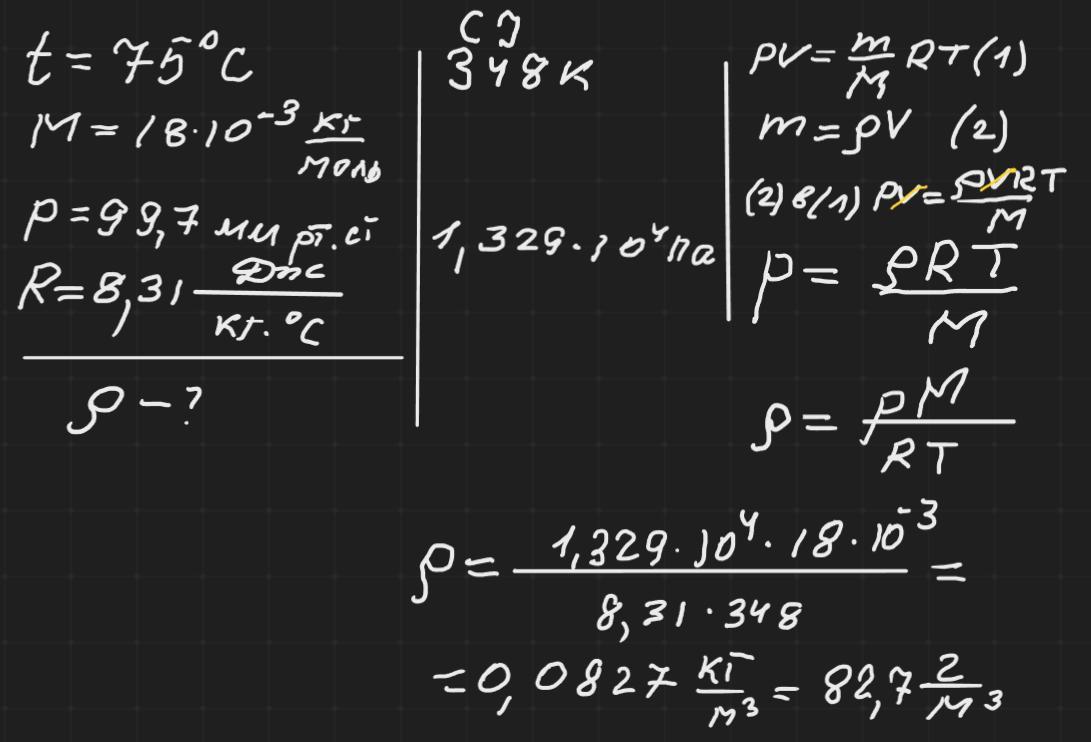 t = 75°C
M = 18·10⁻³ кг/моль
p = 99,7 мм рт. ст
R = 8,31 Дж/кг·°C
ρ – ?
СИ
348 К
1,329·10⁴ Па
pV = m/M RT (1)
m = ρV (2)
(2) в (1) pV = ρVRT/M
p = ρRT/M
ρ = pM/RT
ρ = 1,329·10⁴·18·10⁻³/8,31·348 =
= 0,0827 кг/м³ = 82,7 г/м³